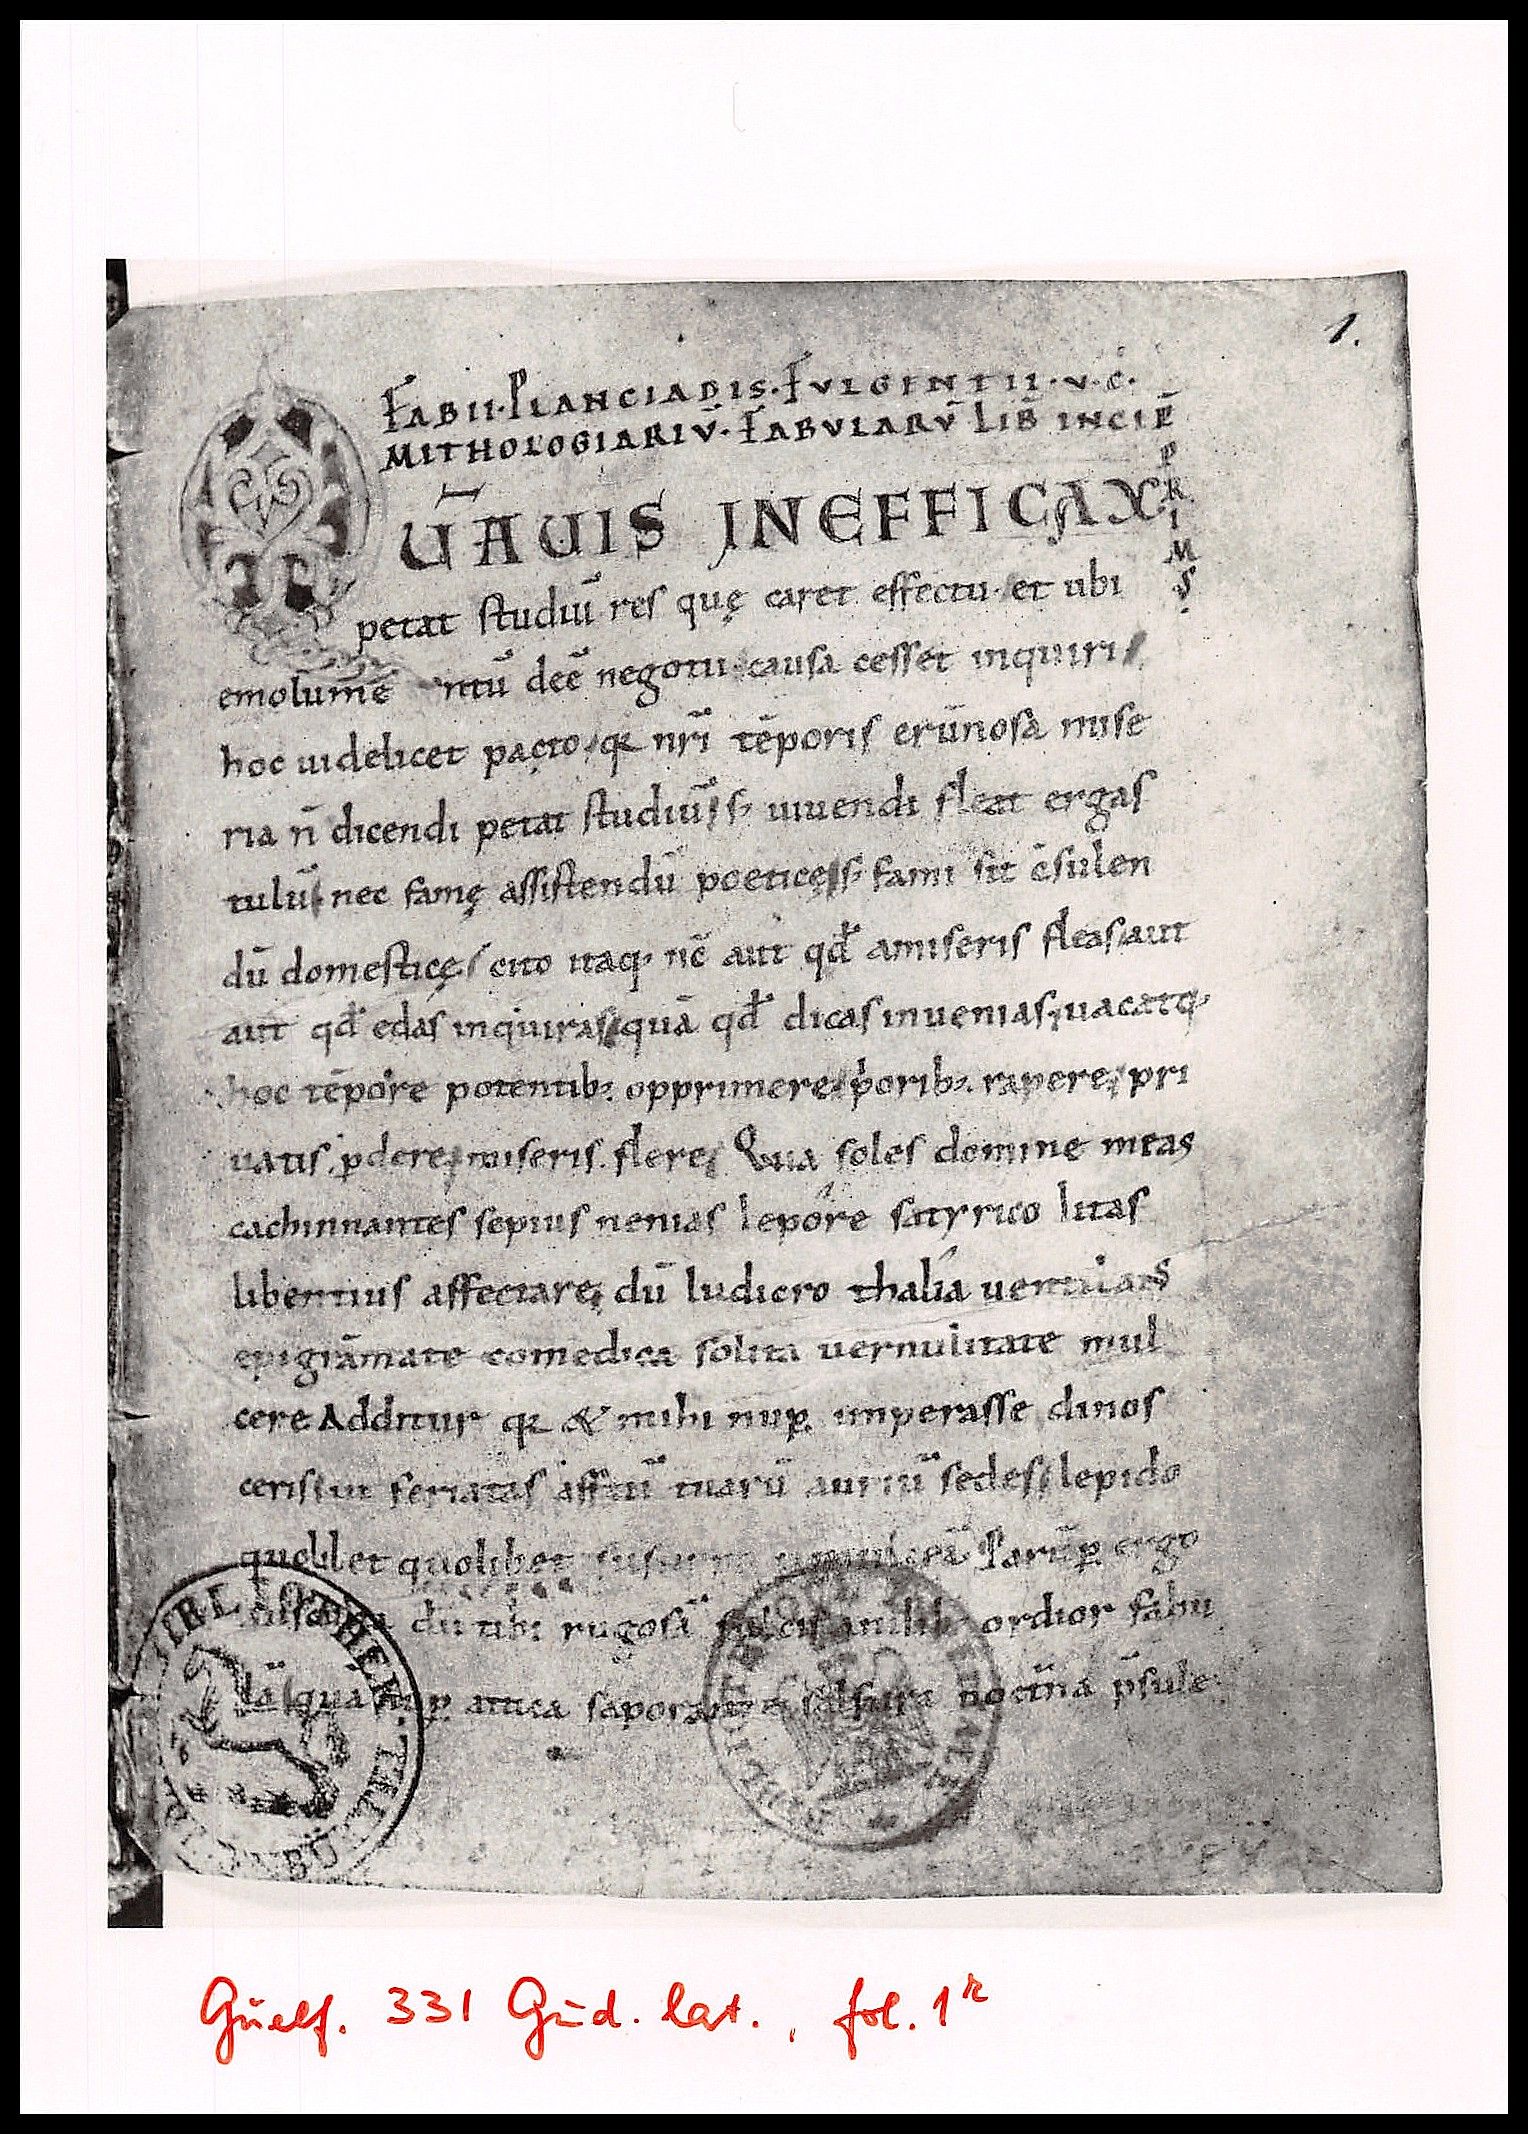 1.
FABII·PLANCIADIS·FVLGENTII·V·C·
MITHOLOGIARIV̄·FABVLARV̄ LIB̄ INCIP̄
PRIMS
QUĀUIS INEFFICAX
petat studiū res quę caret effectu· et ubi
emolumē ntū deē negotii causa cesset inquiri
hoc uidelicet pacto qꝫ nr̄i tēporis erūnosa mise
ria n̄ dicendi petat studiū sꝫ uiuendi fleat ergas
tulū nec famę assistendū poeticę sꝫ fami sit c̄sulen
dū domesticę cito itaqꝫ nc̄ aut qđ amiseris fleas aut
aut qđ edas inquiras quā qđ dicas inuenias uacatqꝫ
hoc tēpore potentibꝫ opprimere p̍oribꝫ rapere pri
uatis ꝑdere miseris flere Qua soles domine meas
cachinnantes sepius nenias lepore satyrico litas
libentius affectare dū ludicro thalia uentilans
epigrāmate comedica solita uernulitate mul
cere Additur qꝫ & mihi nuꝑ imperasse dinos
ceris ut feriatas affatū tuarū auriū sedes lepido
quolibet Parūꝑ ergo
dū tibi rugosā ordior fabu
lā quā attica saporante nocturna p̄sule
BIBLIOTHEK
Guelf. 331 Gud. lat., fol. 1r